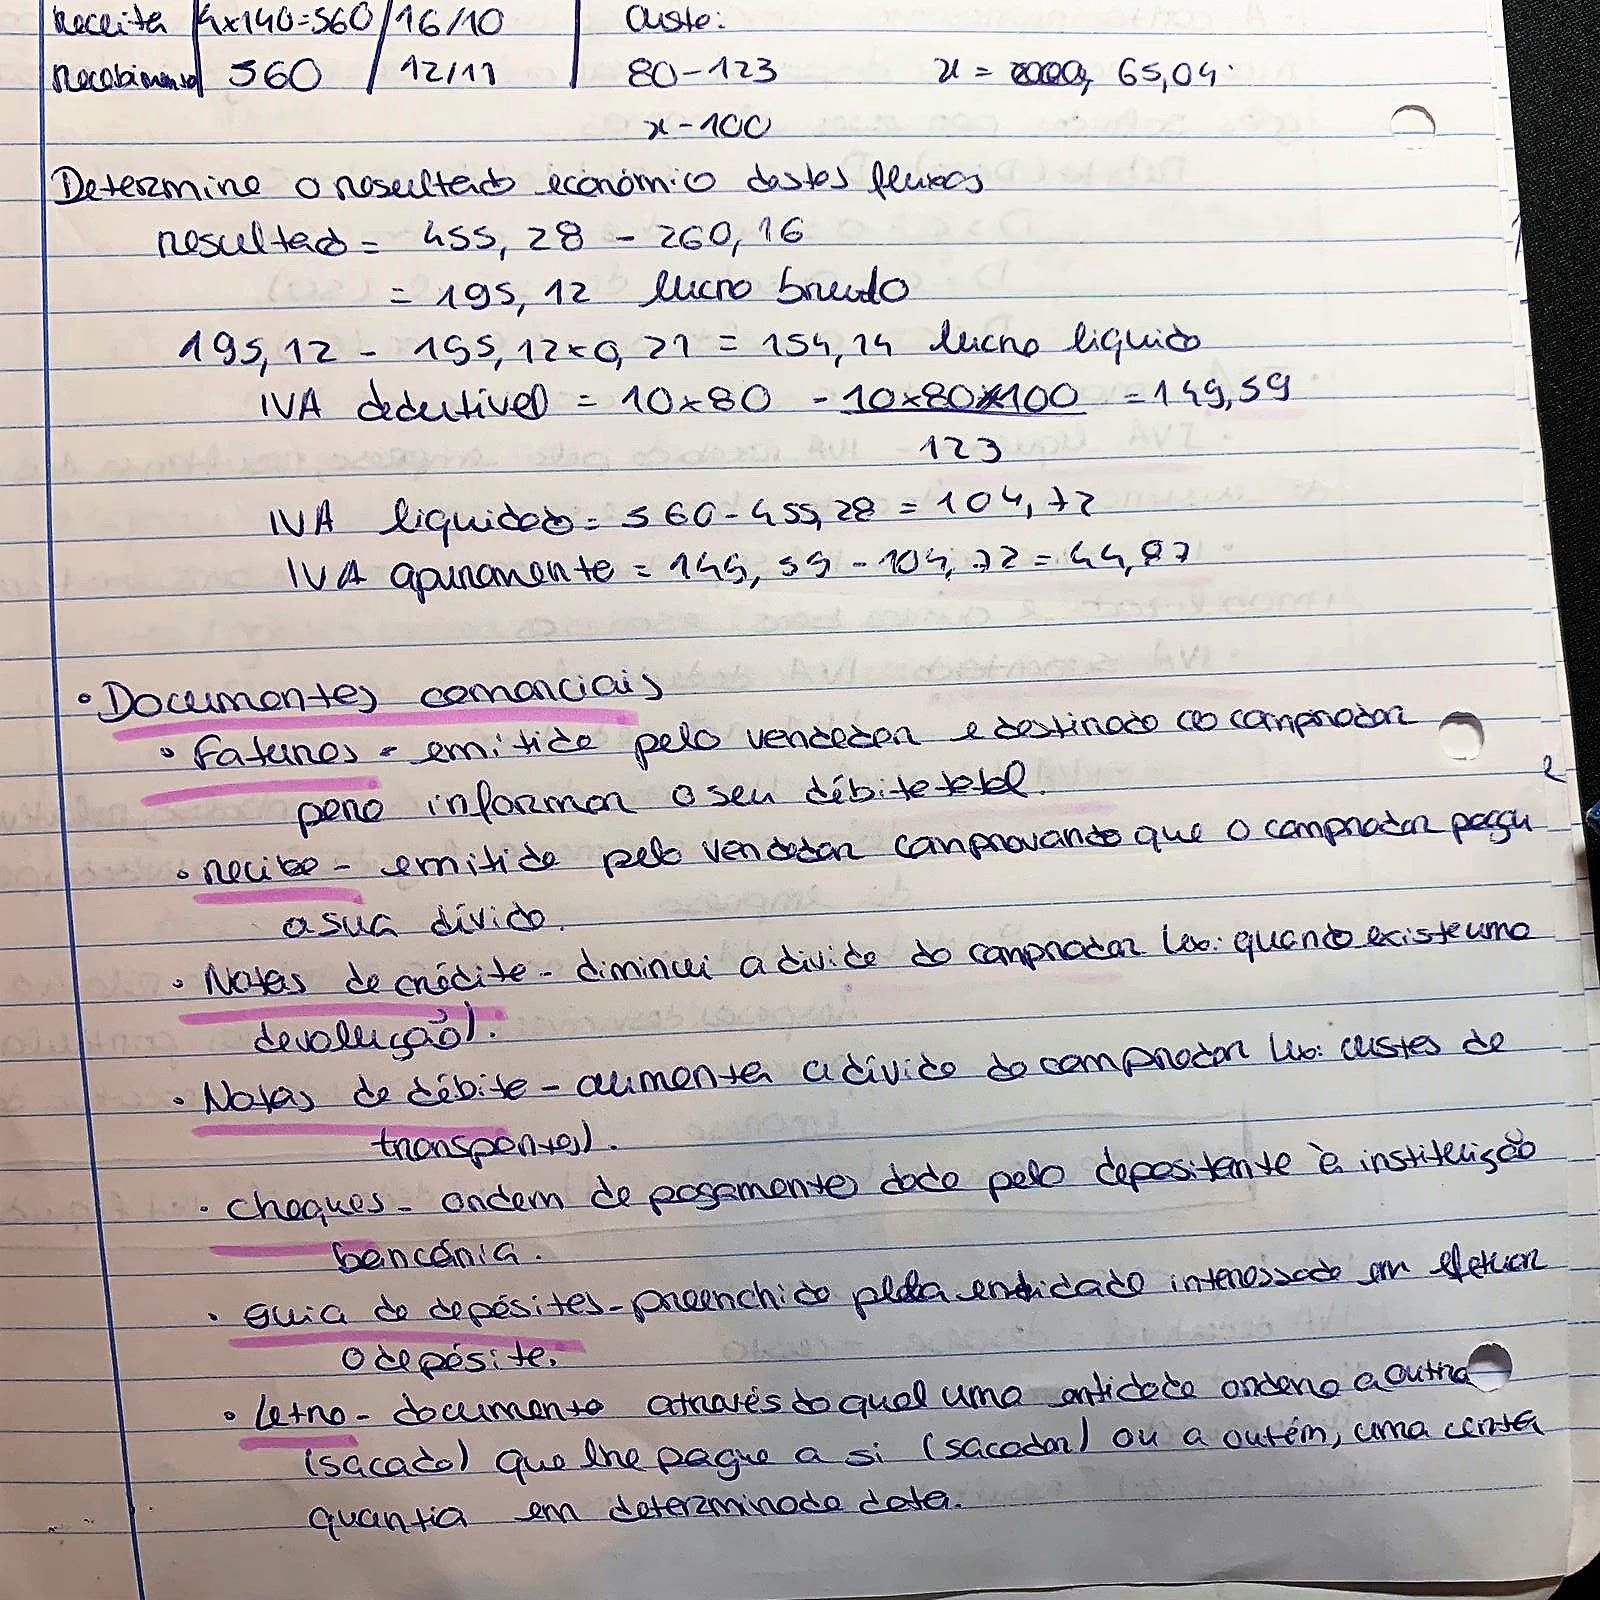 Receita 4x140=560 16/10 Custo:
Recebimento 560 12/11 80-123 x = 65,04
x-100
Determine o resultado económico destes fluxos
resultado = 455,28 - 260,16
= 195,12 lucro bruto
195,12 - 195,12x0,21 = 154,14 lucro liquido
IVA dedutível = 10x80 - 10x80x100 = 149,59
123
IVA liquidado = 560-455,28 = 104,72
IVA apuramento = 149,59 - 104,72 = 44,87
• Documentos comerciais
• Faturas - emitida pelo vendedor e destinado ao comprador
para informar o seu débito total.
• recibo - emitido pelo vendedor comprovando que o comprador pagou
a sua dívida.
• Notas de crédito - diminui a divida do comprador (ex: quando existe uma
devolução).
• Notas de débito - aumenta a dívida do comprador (ex: custos de
transportes).
• Cheques - ordem de pagamento dada pelo depositante à instituição
bancária.
• Guia de depósitos - preenchido pela entidade interessada em efetuar
o depósito.
• Letra - documento através do qual uma entidade ordena a outra
(sacado) que lhe pague a si (sacador) ou a outém, uma certa
quantia em determinada data.